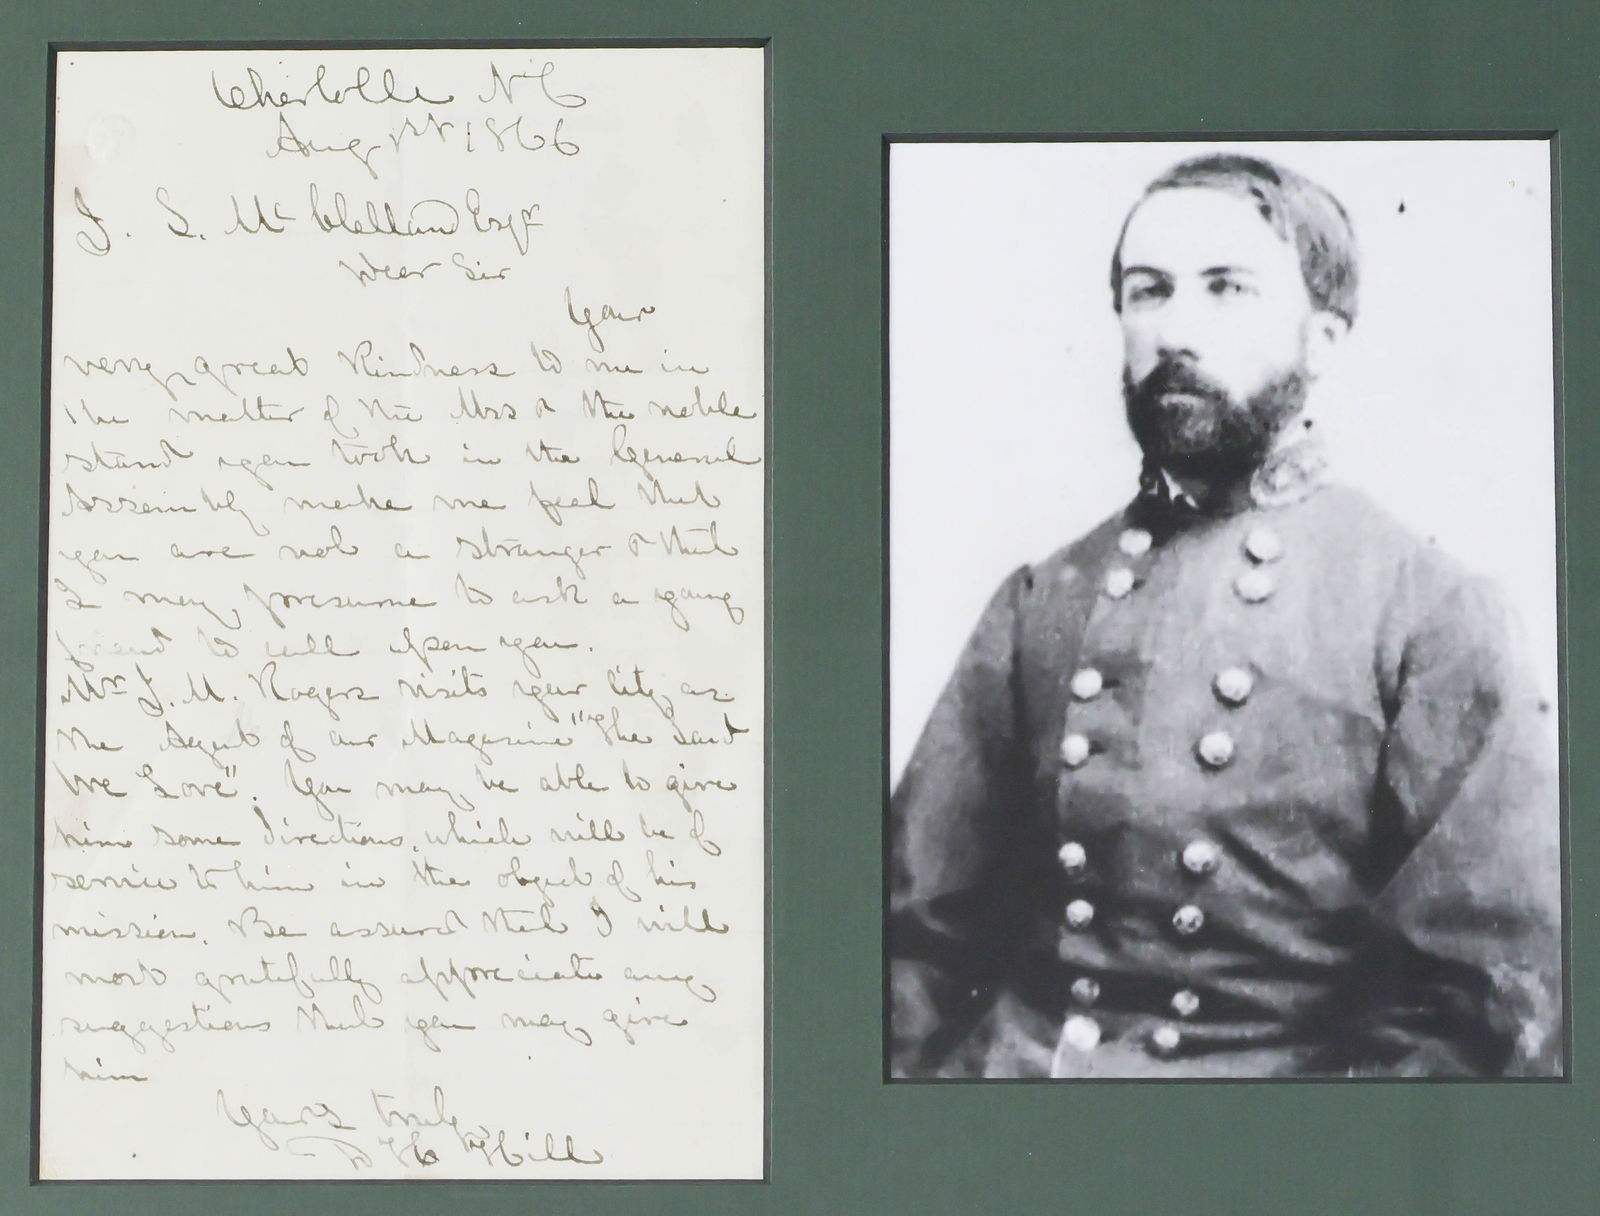 Charlotte N C
Aug 1st 1866
J. S. McClelland Esqr
Dear Sir
Your
very great kindness to me in
the matter of the Mss & the noble
stand you took in the General
Assembly make me feel that
you are not a stranger & that
I may presume to ask a young
friend to call upon you.
Mr J. M. Rogers visits your city as
the Agent of our Magazine "The Land
We Love". You may be able to give
him some directions, which will be of
service to him in the object of his
mission. Be assured that I will
most gratefully appreciate any
suggestions that you may give
him
Yours truly
D H Hill